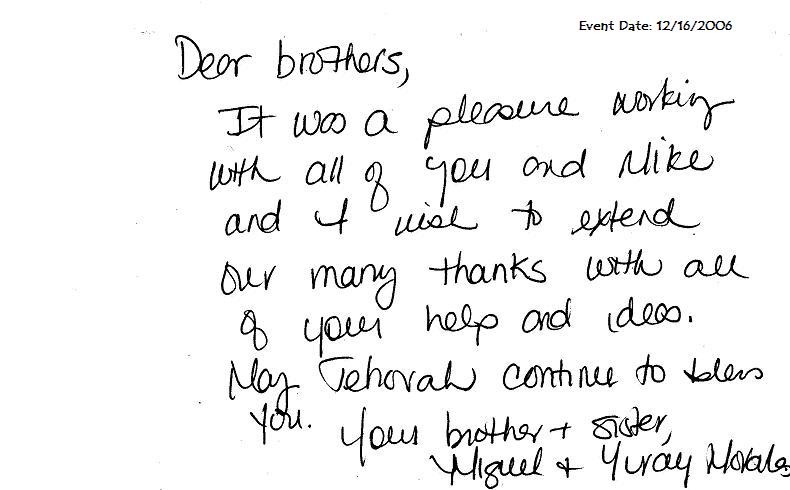 Event Date: 12/16/2006
Dear brothers,
It was a pleasure working
with all of you and Mike
and I wish to extend
our many thanks with all
of your help and ideas.
May Jehovah continue to bless
you.
Your brother + sister,
Miguel + Yuray Morales